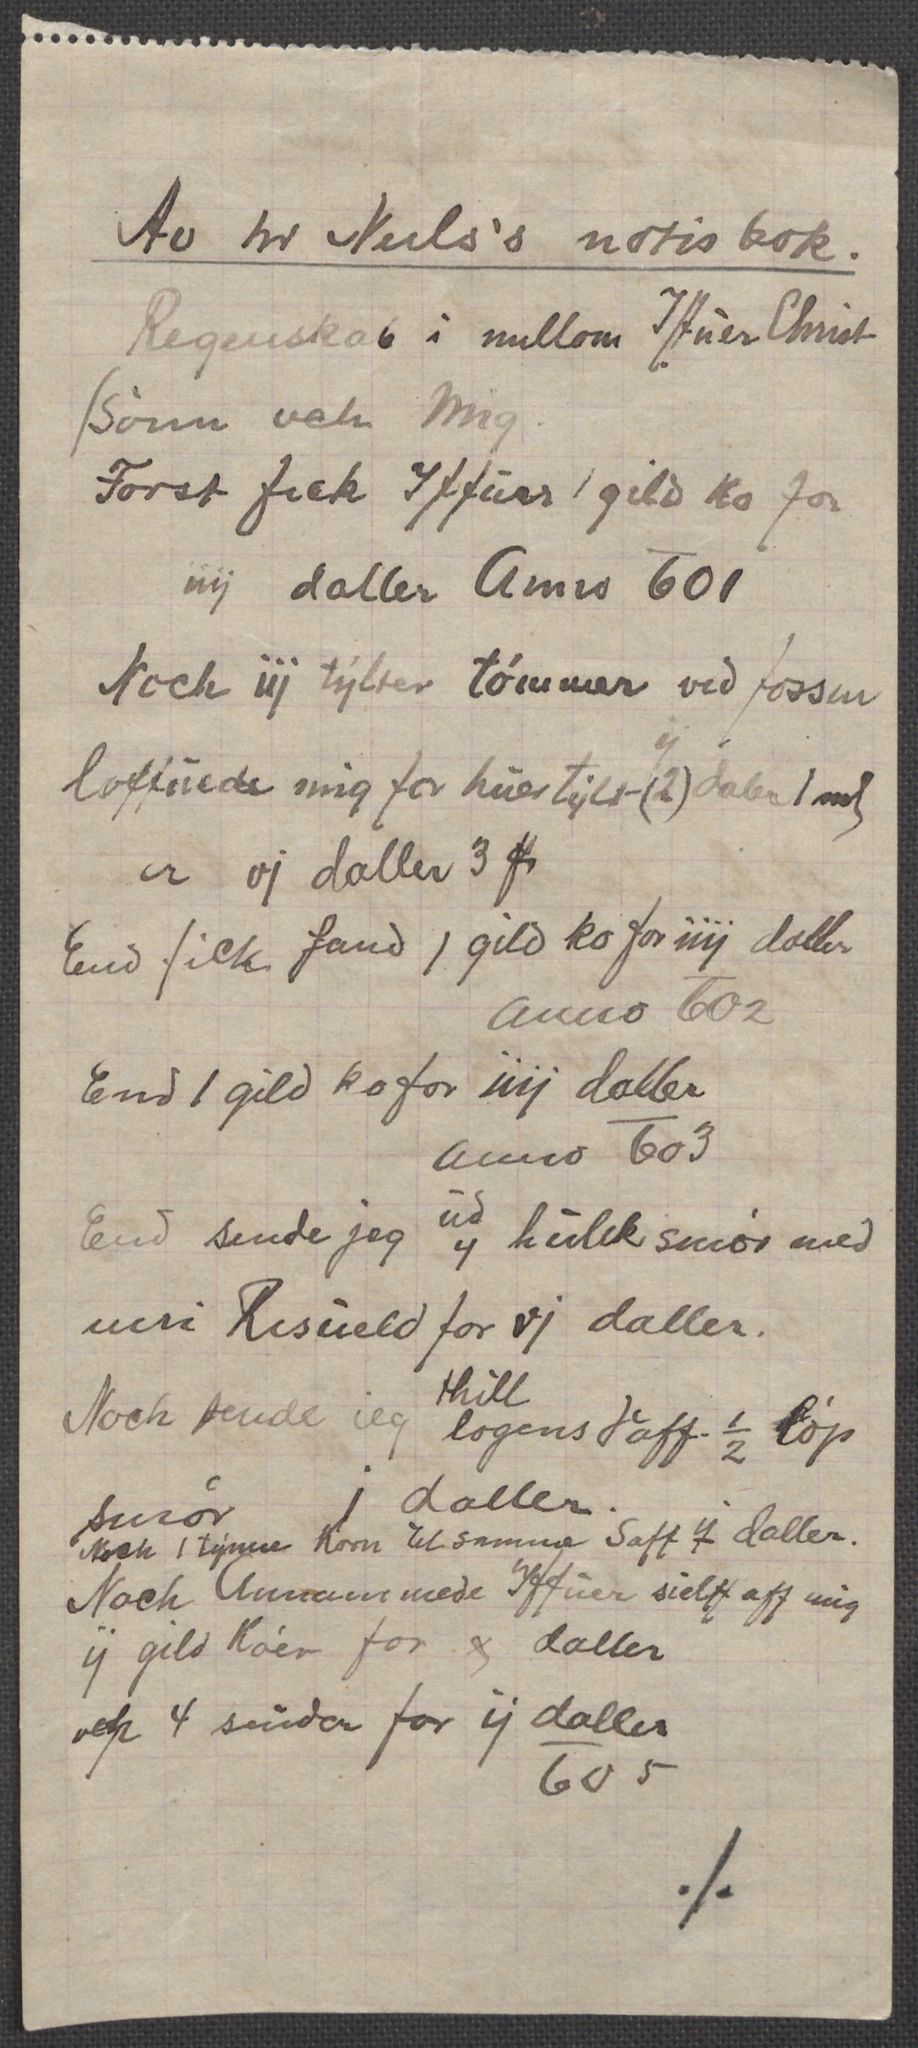 Av hr Neils's notisbok.
Regenskab i mellom Iffüer Christ
sönn och Mig.
Forst fick Iffüer 1 gild ko for
iiij daller Anno 601
Noch iij tÿlter tómmer ved fossen
loffüede mig for hüer tÿlt (2) ij daler 1 mk
er vj daller 3 mk
End fick hand 1 gild ko for iiij daller
anno 602
End 1 gild ko for iiij daller
anno 603
End sende jeg üd 4 hülck smór med
Resüeld for vj daller.
Noch sende jeg thill
logens aff ½ lóp
smór j daller.
Noch 1 tÿnne Korn til samme Saff ij daller.
Noch Annammede Iffüer sielff aff mig
ij gild Kóer for x daller
och 4 seüder for ij daller
605
./.